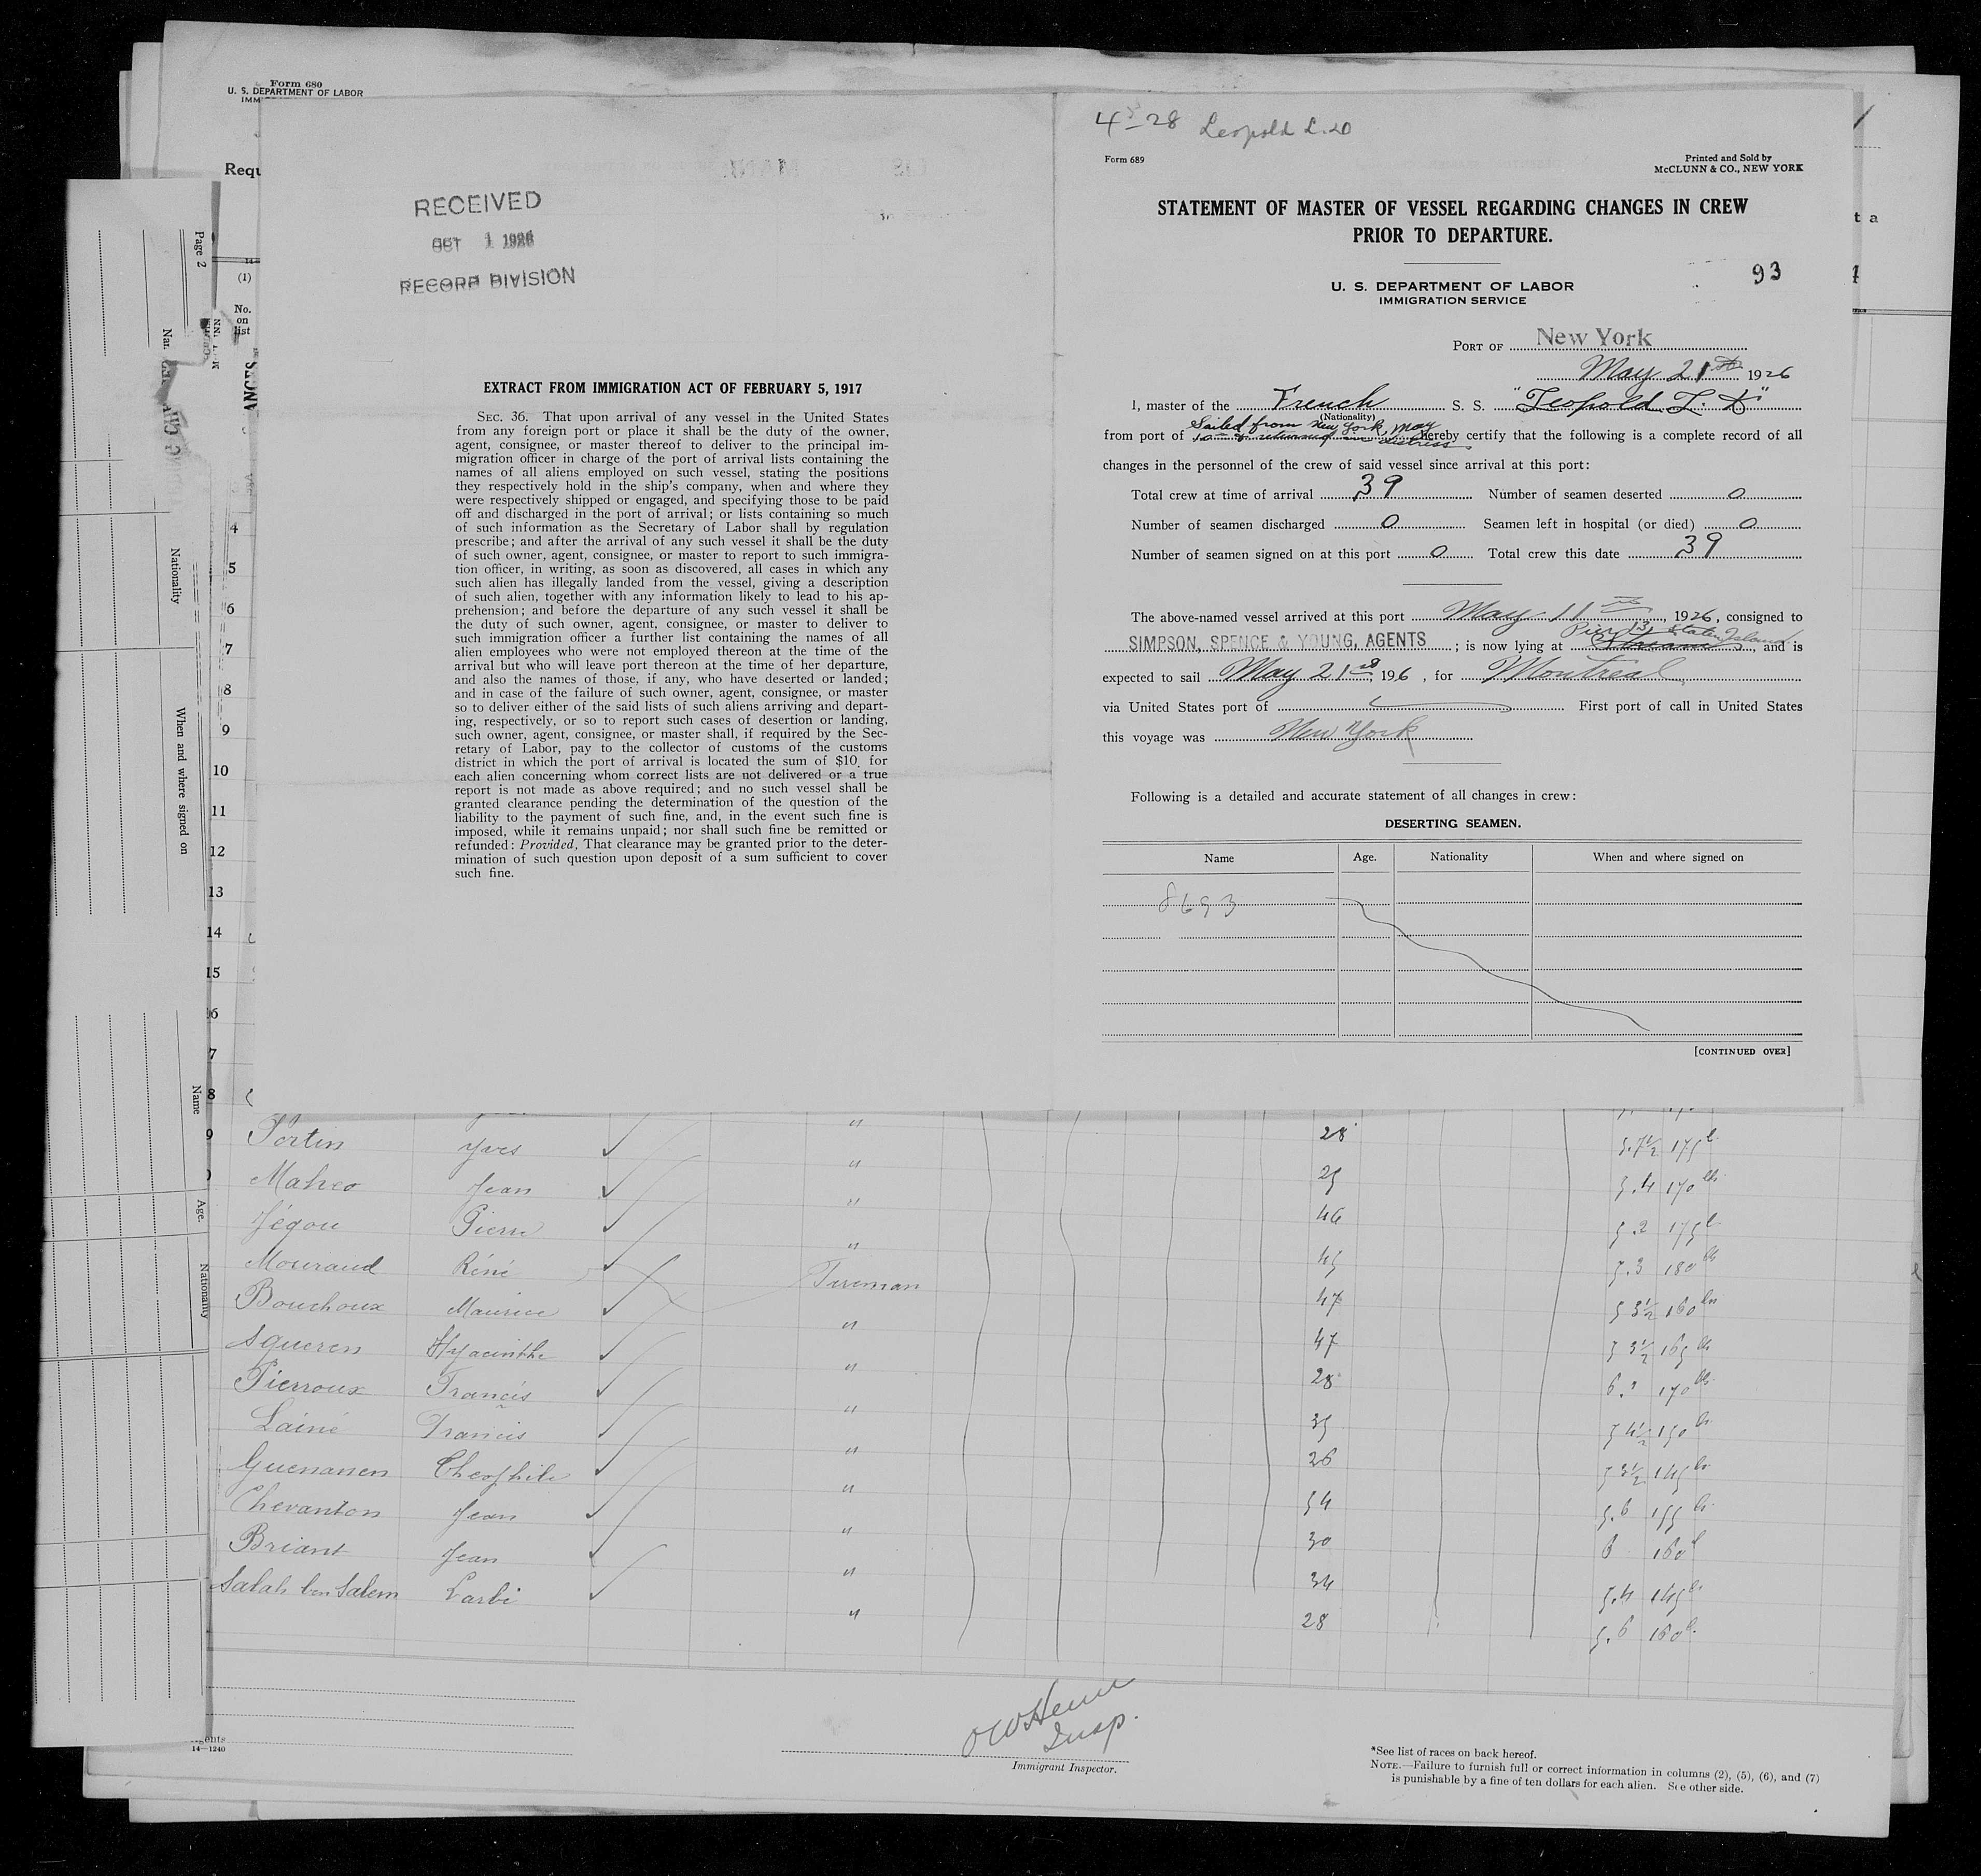 Form 680
U. S. DEPARTMENT OF LABOR
Requ
Page 2
Nationality
When and where signed on
Name
Age.
Nationality
(1)
No.
on
list
4
5
6
7
8
9
10
11
12
13
14
15
RECEIVED
OCT 1 1926
RECORD DIVISION
EXTRACT FROM IMMIGRATION ACT OF FEBRUARY 5, 1917
SEC. 36. That upon arrival of any vessel in the United States
from any foreign port or place it shall be the duty of the owner,
agent, consignee, or master thereof to deliver to the principal im-
migration officer in charge of the port of arrival lists containing the
names of all aliens employed on such vessel, stating the positions
they respectively hold in the ship's company, when and where they
were respectively shipped or engaged, and specifying those to be paid
off and discharged in the port of arrival; or lists containing so much
of such information as the Secretary of Labor shall by regulation
prescribe; and after the arrival of any such vessel it shall be the duty
of such owner, agent, consignee, or master to report to such immigra-
tion officer, in writing, as soon as discovered, all cases in which any
such alien has illegally landed from the vessel, giving a description
of such alien, together with any information likely to lead to his ap-
prehension; and before the departure of any such vessel it shall be
the duty of such owner, agent, consignee, or master to deliver to
such immigration officer a further list containing the names of all
alien employees who were not employed thereon at the time of the
arrival but who will leave port thereon at the time of her departure,
and also the names of those, if any, who have deserted or landed;
and in case of the failure of such owner, agent, consignee, or master
so to deliver either of the said lists of such aliens arriving and depart-
ing, respectively, or so to report such cases of desertion or landing,
such owner, agent, consignee, or master shall, if required by the Sec-
retary of Labor, pay to the collector of customs of the customs
district in which the port of arrival is located the sum of $10 for
each alien concerning whom correct lists are not delivered or a true
report is not made as above required; and no such vessel shall be
granted clearance pending the determination of the question of the
liability to the payment of such fine, and, in the event such fine is
imposed, while it remains unpaid; nor shall such fine be remitted or
refunded: Provided, That clearance may be granted prior to the deter-
mination of such question upon deposit of a sum sufficient to cover
such fine.
4-28 Leopold L.D
Form 689
Printed and Sold by
McCLUNN & CO., NEW YORK
STATEMENT OF MASTER OF VESSEL REGARDING CHANGES IN CREW
PRIOR TO DEPARTURE.
93
U. S. DEPARTMENT OF LABOR
IMMIGRATION SERVICE
PORT OF New York
May 21st 1926
I, master of the French S. S. "Leopold L. D"
(Nationality)
Sailed from New York May
from port of 10th & returned in distress hereby certify that the following is a complete record of all
changes in the personnel of the crew of said vessel since arrival at this port:
Total crew at time of arrival 39 Number of seamen deserted 0
Number of seamen discharged 0 Seamen left in hospital (or died) 0
Number of seamen signed on at this port 0 Total crew this date 39
The above-named vessel arrived at this port May 11th, 1926, consigned to
Pier 13 Staten Island
SIMPSON, SPENCE & YOUNG, AGENTS; is now lying at Stream, and is
expected to sail May 21st, 1926, for Montreal
via United States port of First port of call in United States
this voyage was New York
Following is a detailed and accurate statement of all changes in crew:
DESERTING SEAMEN.
Name Age. Nationality When and where signed on
8693
[CONTINUED OVER]
Portin Yves " 28 5.7½ 175 l
Maheo Jean " 25 5.4 170 lbs
Jégou Pierre " 46 5.2 175 l
Mouraud Réné " 45 5.3 180 lbs
Bouchoux Maurice Fireman 47 5 3½ 160 lbs
Squeren Hyacinthe " 47 5 3½ 165 lbs
Pierroux Francis " 28 6. 170 lbs
Lainé Francis " 35 5 4½ 150 lbs
Guenanen Theophile " 26 5 3½ 145 lbs
Chevanton Jean " 54 5.6 155 lbs
Briant Jean " 30 6 160 l
Salah ben Salem Larbi " 34 5.4 145 lbs
" 28 5.6 160 l.
Insp.
Immigrant Inspector.
14—1240
*See list of races on back hereof.
NOTE.—Failure to furnish full or correct information in columns (2), (5), (6), and (7)
is punishable by a fine of ten dollars for each alien. See other side.